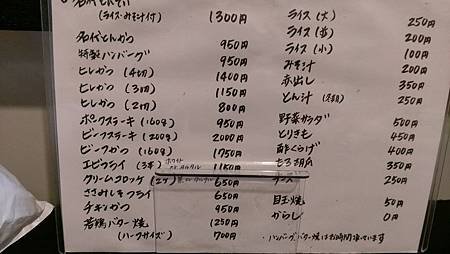 (ライス・みそ汁付) 1300円
名代とんかつ 950円
特製ハンバーグ 950円
ヒレかつ (4切) 1400円
ヒレかつ (3切) 1150円
ヒレかつ (2切) 800円
ポークステーキ (160g) 950円
ビーフステーキ (200g) 2000円
ビーフかつ (160g) 1750円
エビフライ (3本) 1150円
クリームコロッケ (2ケ) 650円
ささみしそフライ 650円
チキンかつ 950円
若鶏バター焼 1250円
(ハーフサイズ) 700円
ライス (大) 250円
ライス (並) 200円
ライス (小) 100円
みそ汁 200円
赤出し 350円
とん汁 250円
野菜サラダ 500円
とりきも 450円
酢くらげ 400円
もろ胡瓜 350円
250円
目玉焼 50円
からし 0円
・ハンバーグ、バター焼はお時間